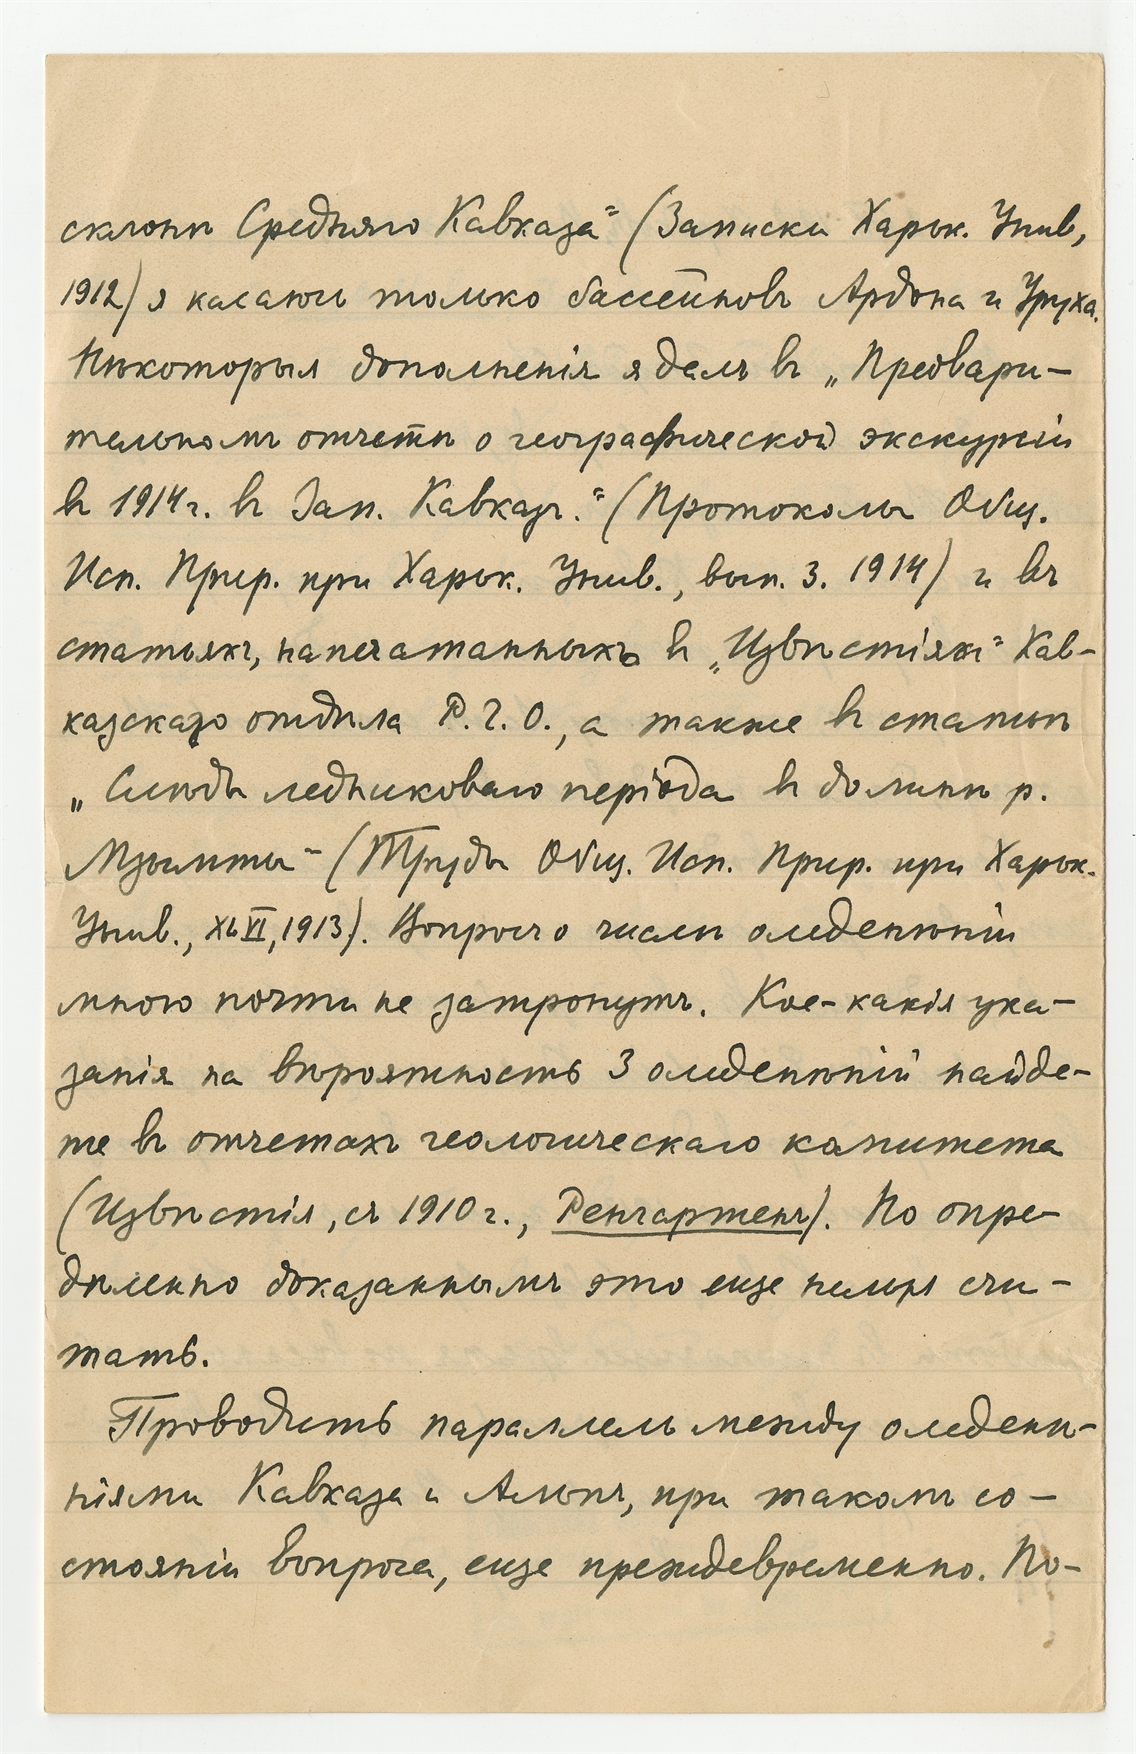 склонѣ Средняго Кавказа“ (Записки Харьк. Унив,
1912) я касаюсь только бассейновъ Ардона и Уруха.
Нѣкоторыя дополненія я далъ въ „Предвари-
тельномъ отчетѣ о географической экскурсіи
въ 1914 г. въ Зап. Кавказъ.“ (Протоколы Общ.
Исп. Прир. при Харьк. Унив., вып. 3. 1914) и въ
статьяхъ, напечатанныхъ въ „Извѣстіяхъ“ Кав-
казскаго отдѣла Р. Г. О., а также въ статьѣ
„Слѣды ледниковаго періода въ долинѣ р.
Мзымты“ (Труды Общ. Исп. Прир. при Харьк.
Унив., XLVI, 1913). Вопросъ о числѣ оледенѣній
мною почти не затронутъ. Кое-какія ука-
занія на вѣроятность 3 оледенѣній найде-
те въ отчетахъ геологическаго комитета
(Извѣстія, съ 1910 г., Ренгартенъ). Но опре-
дѣленно доказаннымъ это еще нельзя счи-
тать.
Проводить параллель между оледенѣ-
ніями Кавказа и Альпъ, при такомъ со-
стояніи вопроса, еще преждевременно. По-